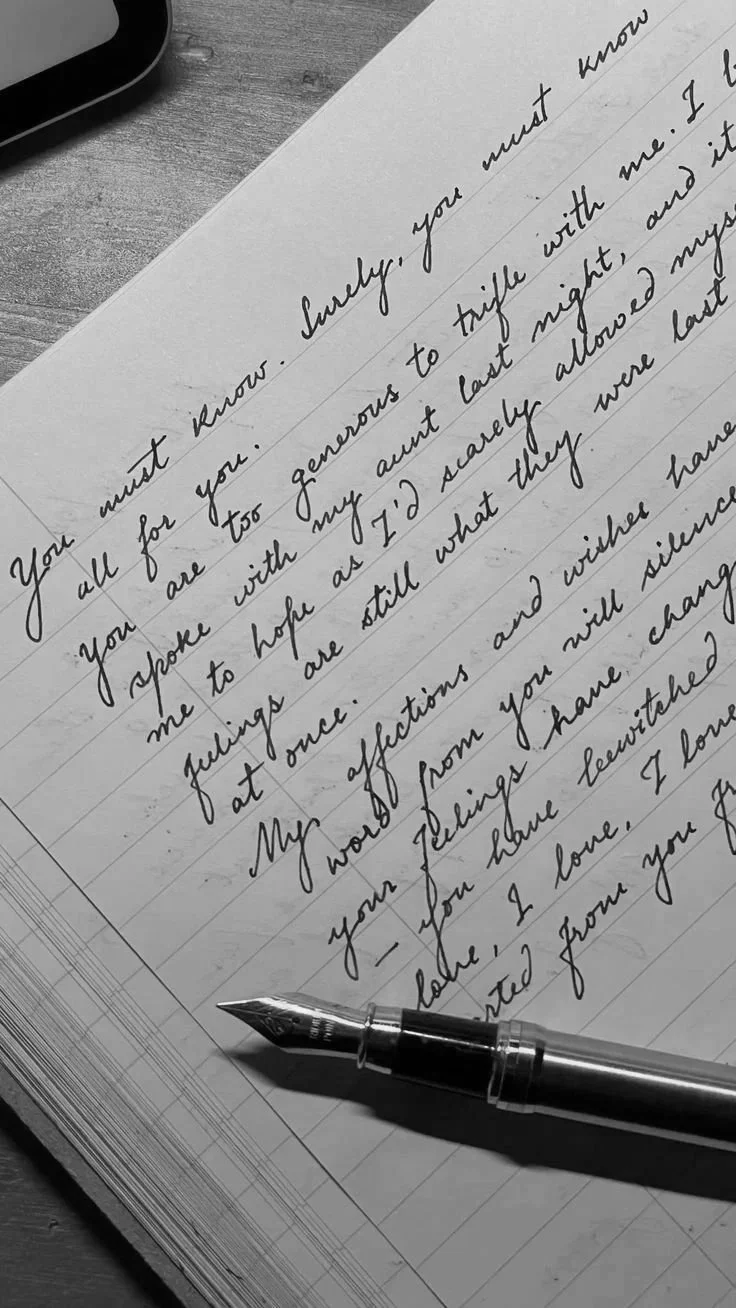 You must know. Surely, you must know
all for you.
you are too generous to trifle with me. I
spoke with my aunt last night, and it
me to hope as I'd scarely allowed
feelings are still what they were last
at once.
My affections and wishes have
word from you will silence
your feelings have
– you have bewitched
love, I love, I love
from you